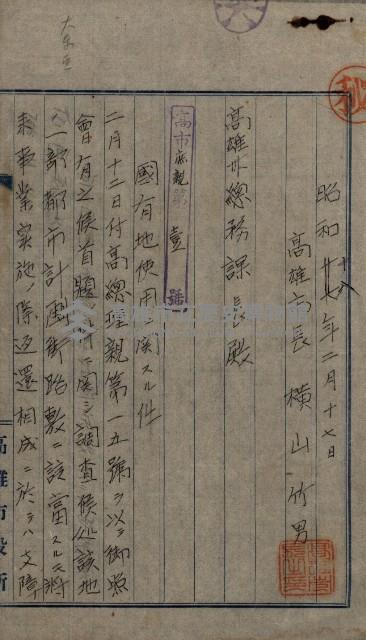 秘
昭和十八年二月十七日
高雄市長 横山竹男
高雄州總務課長殿
高市庶親第壹號
國有地使用ニ関スル件
二月十二日付高總理親第一五號ヲ以テ御照
會有之候首題ノ件ニ関シ調査候処該地
ハ一部都市計画街路敷ニ該當スルモ将
来事業実施ノ際返還相成ニ於テハ支障
高雄市役所